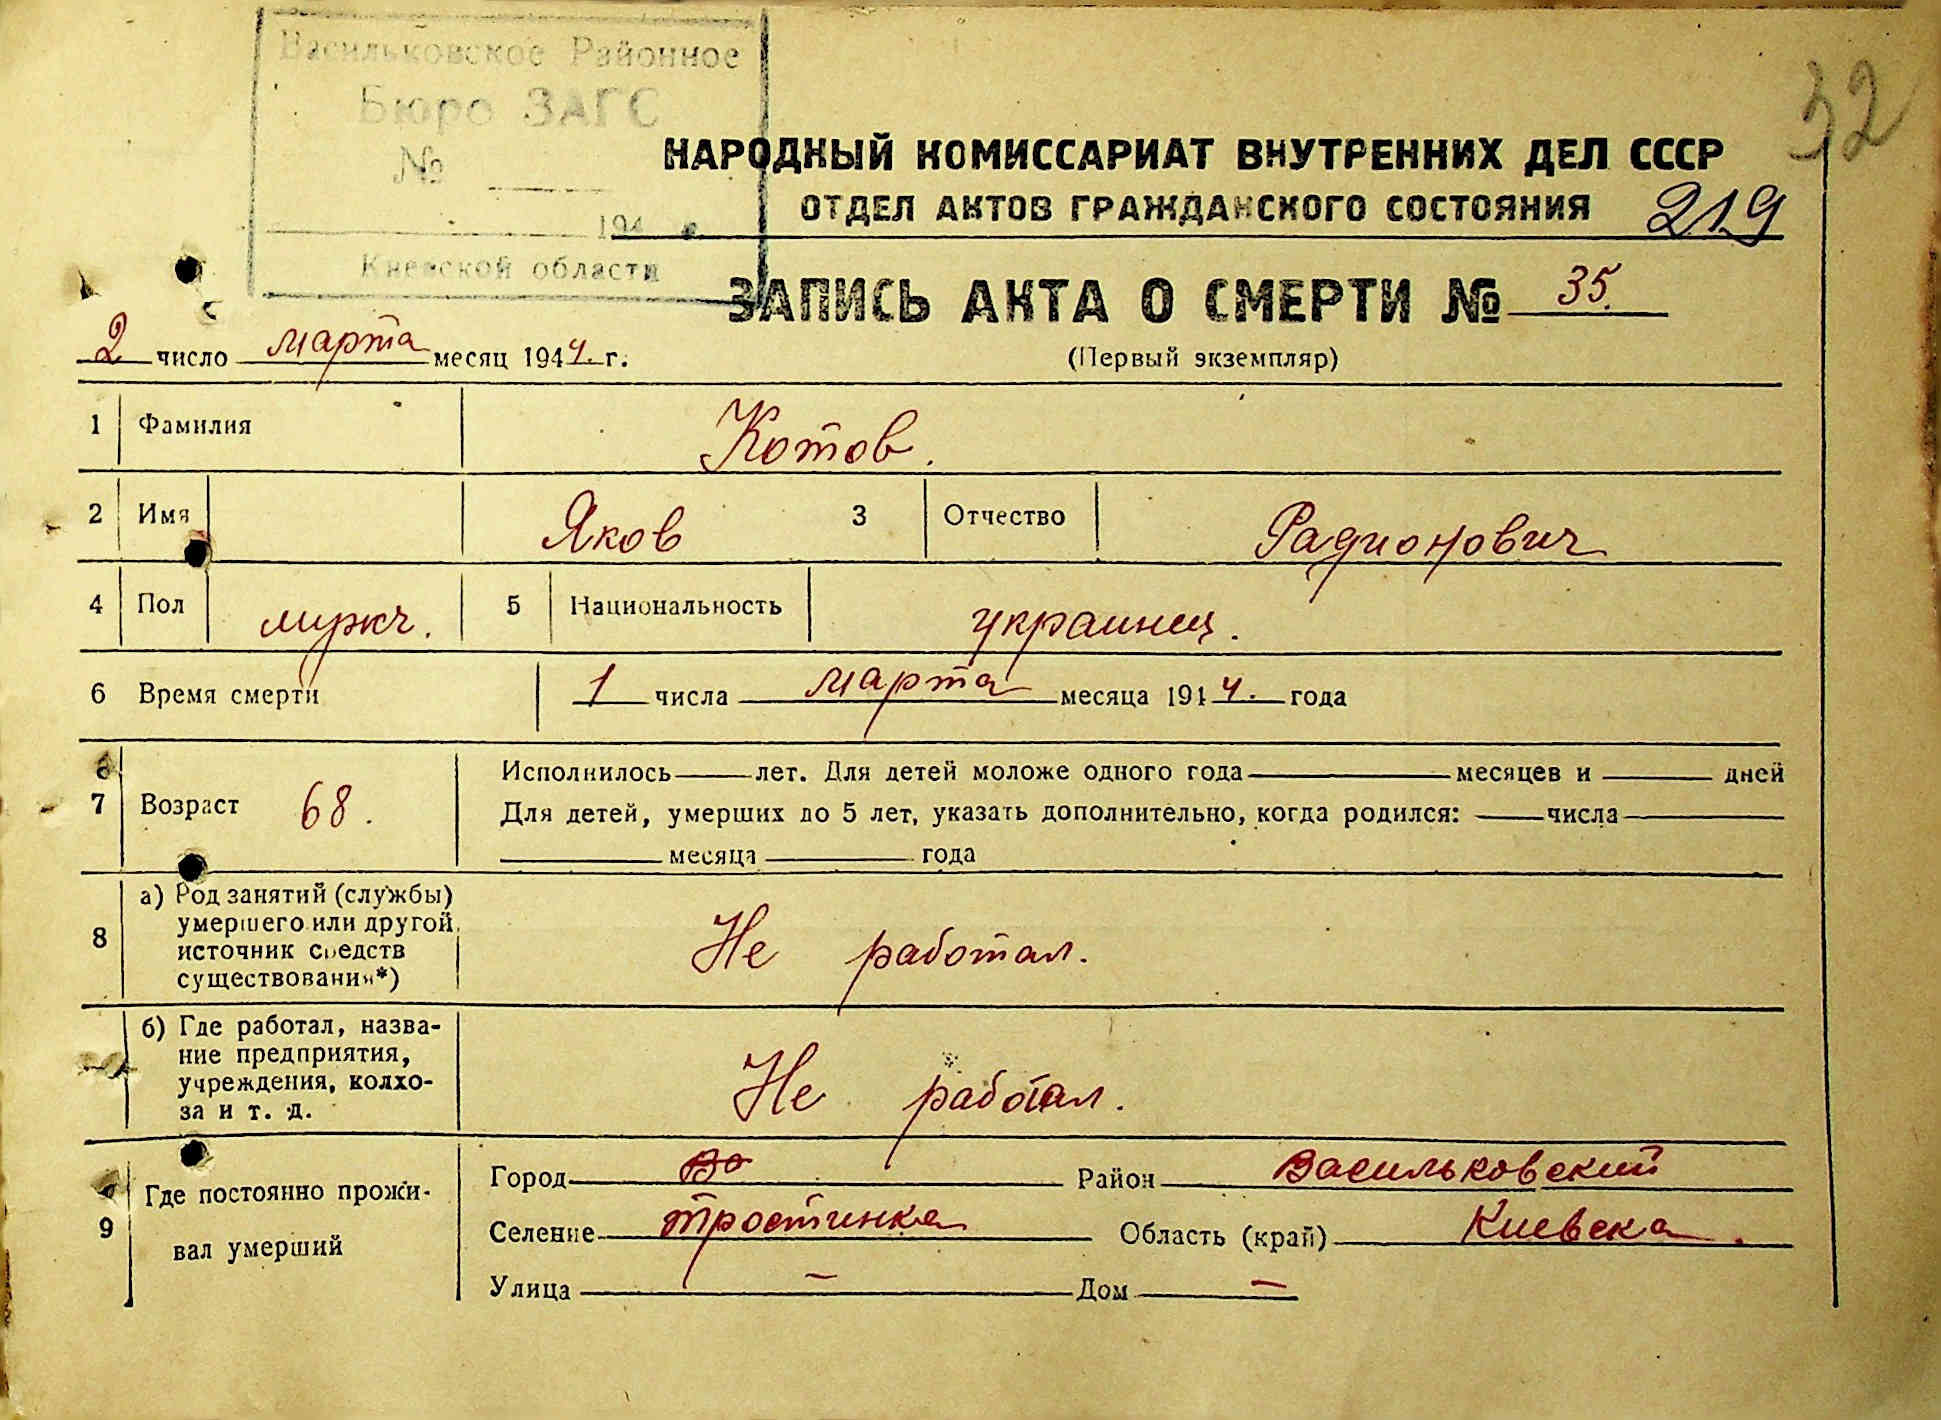 Васильковское Районное
Бюро ЗАГС
№
194 г.
Киевской области
32
НАРОДНЫЙ КОМИССАРИАТ ВНУТРЕННИХ ДЕЛ СССР
ОТДЕЛ АКТОВ ГРАЖДАНСКОГО СОСТОЯНИЯ 219
ЗАПИСЬ АКТА О СМЕРТИ № 35.
2 число марта месяц 1944. г. (Первый экземпляр)
1 Фамилия Котов.
2 Имя Яков 3 Отчество Радионович
4 Пол мужч. 5 Национальность украинец.
6 Время смерти 1 числа марта месяца 1944. года
6 Исполнилось лет. Для детей моложе одного года месяцев и дней
7 Возраст 68. Для детей, умерших до 5 лет, указать дополнительно, когда родился: числа
месяца года
8 а) Род занятий (службы)
умершего или другой
источник средств
существования*)
Не работал.
б) Где работал, назва-
ние предприятия,
учреждения, колхо-
за и т. д.
Не работал.
9 Где постоянно прожи-
вал умерший
Город Во Район Васильковский
Селение Тростинка Область (край) Киевска.
Улица – Дом –